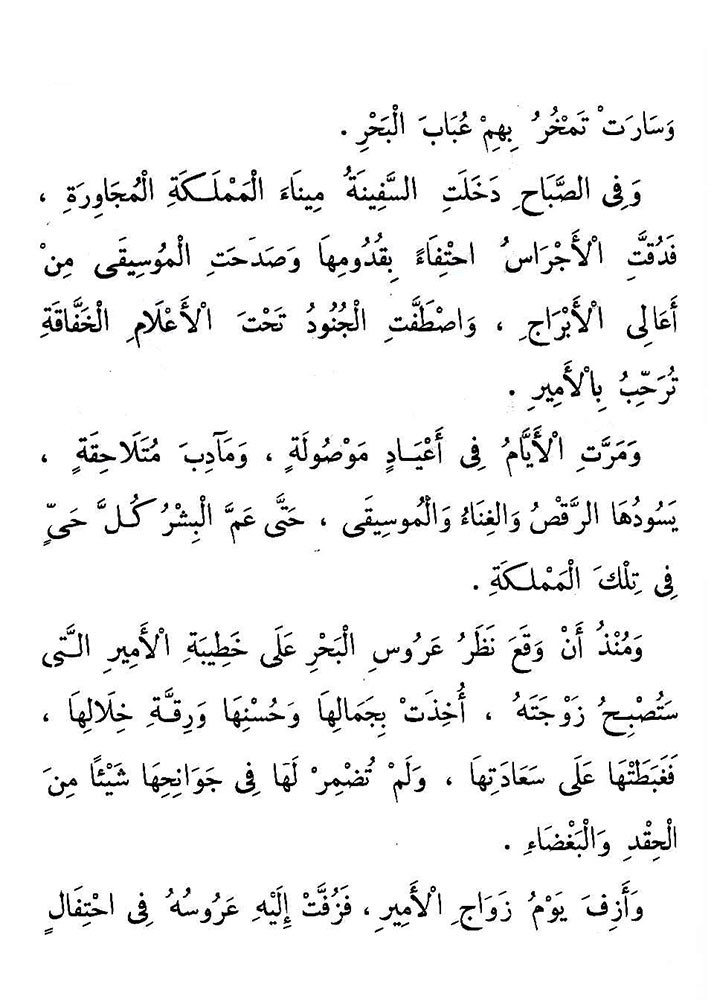 وَسَارَتْ تَمْخُرُ بِهِمْ عُبَابَ الْبَحْرِ .
وَفِى الصَّبَاحِ دَخَلَتِ السَّفِينَةُ مِينَاءَ الْمَمْلَكَةِ الْمُجَاوِرَةِ ،
فَدُقَّتِ الْأَجْرَاسُ احْتِفَاءً بِقُدُومِهَا وَصَدَحَتِ الْمُوسِيقَى مِنْ
أَعَالِى الْأَبْرَاجِ ، وَاصْطَفَّتِ الْجُنُودُ تَحْتَ الْأَعْلَامِ الْخَفَّاقَةِ
تُرَحِّبُ بِالْأَمِيرِ .
وَمَرَّتِ الْأَيَّامُ فِى أَعْيَادٍ مَوْصُولَةٍ ، وَمَآدِبَ مُتَلَاحِقَةٍ ،
يَسُودُهَا الرَّقْصُ وَالْغِنَاءُ وَالْمُوسِيقَى ، حَتَّى عَمَّ الْبِشْرُ كُلَّ حَىٍّ
فِى تِلْكَ الْمَمْلَكَةِ .
وَمُنْذُ أَنْ وَقَعَ نَظَرُ عَرُوسِ الْبَحْرِ عَلَى خَطِيبَةِ الْأَمِيرِ الَّتِى
سَتُصْبِحُ زَوْجَتَهُ ، أُخِذَتْ بِجَمَالِهَا وَحُسْنِهَا وَرِقَّةِ خِلَالِهَا ،
فَغَبَطَتْهَا عَلَى سَعَادَتِهَا ، وَلَمْ تُضْمِرْ لَهَا فِى جَوَانِحِهَا شَيْئًا مِنَ
الْحِقْدِ وَالْبَغْضَاءِ .
وَأَزِفَ يَوْمُ زَوَاجِ الْأَمِيرِ ، فَزُفَّتْ إِلَيْهِ عَرُوسُهُ فِى احْتِفَالٍ